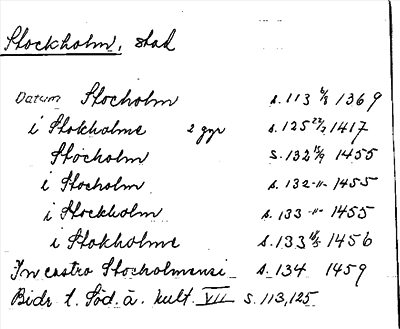 Stockholm, stad
Datum Stocholm s. 113 6/8 1369
i Stokholme 2 ggr s. 125 22/2 1417
Stocholm s. 132 15/9 1455
i Stocholm s. 132 -"- 1455
i Stockholm s. 133 -"- 1455
i Stokholme s. 133 1456
In castro Stocholmensi s. 134 1459
Bidr. t. Söd. ä. kult. VII s. 113, 125